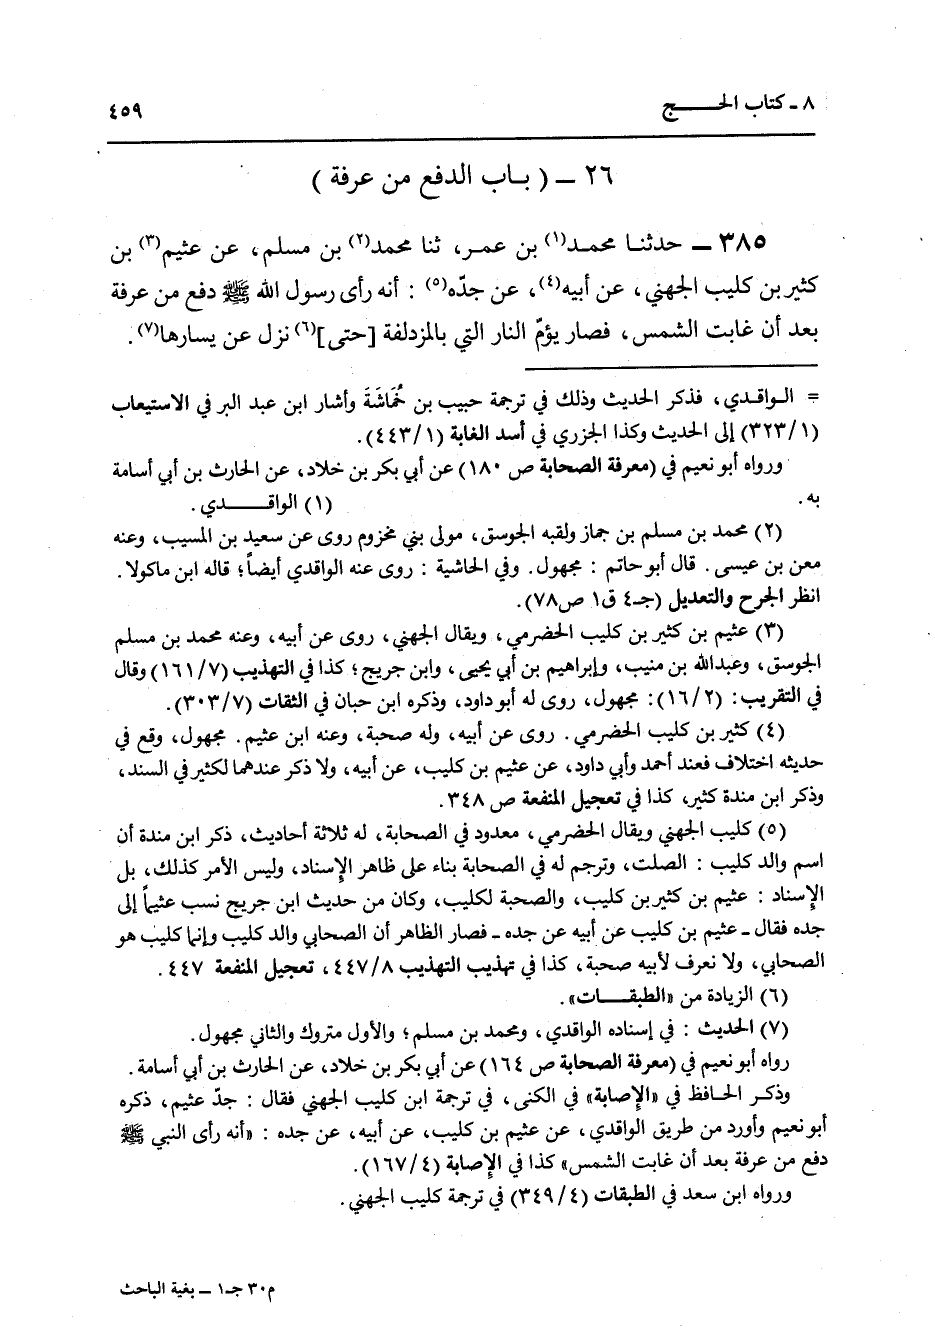 ٨ ـ كتاب الحـــــج
٤٥٩
٢٦ ــ ( بـاب الدفع من عرفة )
٣٨٥ ــ حدثنـا محمـد(١) بن عمـر، ثنا محمد(٢) بن مسلم، عن عثيم(٣) بن
كثير بن كليب الجهني، عن أبيه(٤)، عن جدّه(٥) : أنه رأى رسول الله ﷺ دفع من عرفة
بعد أن غابت الشمس، فصار يؤمّ النار التي بالمزدلفة [حتى](٦) نزل عن يسارها(٧).
= الـواقـدي، فذكر الحديث وذلك في ترجمة حبيب بن خُمَاشَةَ وأشار ابن عبد البر في الاستيعاب
(٣٢٣/١) إلى الحديث وكذا الجزري في أسد الغابة (٤٤٣/١).
ورواه أبو نعيم في (معرفة الصحابة ص ١٨٠) عن أبي بكر بن خلاد، عن الحارث بن أبي أسامة
به. (١) الواقــــدي.
(٢) محمد بن مسلم بن جماز ولقبه الجوسق، مولى بني مخزوم روى عن سعيد بن المسيب، وعنه
معن بن عيسى. قال أبو حاتم : مجهول. وفي الحاشية : روى عنه الواقدي أيضاً؛ قاله ابن ماكولا.
انظر الجرح والتعديل (جـ٤ ق١ ص٧٨).
(٣) عثيم بن كثير بن كليب الحضرمي، ويقال الجهني، روى عن أبيه، وعنه محمد بن مسلم
الجوسق، وعبدالله بن منيب، وإبراهيم بن أبي يحيى، وابن جريج؛ كذا في التهذيب (١٦١/٧) وقال
في التقريب: (١٦/٢): مجهول، روى له أبو داود، وذكره ابن حبان في الثقات (٣٠٣/٧).
(٤) كثير بن كليب الحضرمي. روى عن أبيه، وله صحبة، وعنه ابن عثيم. مجهول، وقع في
حديثه اختلاف فعند أحمد وأبي داود، عن عثيم بن كليب، عن أبيه، ولا ذكر عندهما لكثير في السند،
وذكر ابن مندة كثير، كذا في تعجيل المنفعة ص ٣٤٨.
(٥) كليب الجهني ويقال الحضرمي، معدود في الصحابة، له ثلاثة أحاديث، ذكر ابن مندة أن
اسم والد كليب : الصلت، وترجم له في الصحابة بناء على ظاهر الإسناد، وليس الأمر كذلك، بل
الإسناد : عثيم بن كثير بن كليب، والصحبة لكليب، وكان من حديث ابن جريج نسب عثيماً إلى
جده فقال ـ عثيم بن كليب عن أبيه عن جده ـ فصار الظاهر أن الصحابي والد كليب وإنما كليب هو
الصحابي، ولا نعرف لأبيه صحبة، كذا في تهذيب التهذيب ٤٤٧/٨، تعجيل المنفعة ٤٤٧.
(٦) الزيادة من «الطبقـــات».
(٧) الحديث : في إسناده الواقدي، ومحمد بن مسلم؛ والأول متروك والثاني مجهول.
رواه أبو نعيم في (معرفة الصحابة ص ١٦٤) عن أبي بكر بن خلاد، عن الحارث بن أبي أسامة.
وذكـر الحـافظ في «الإصابة» في الكنى، في ترجمة ابن كليب الجهني فقال : جدّ عثيم، ذكره
أبو نعيم وأورد من طريق الواقدي، عن عثيم بن كليب، عن أبيه، عن جده : «أنه رأى النبي ﷺ
دفع من عرفة بعد أن غابت الشمس» كذا في الإصابة (١٦٧/٤).
ورواه ابن سعد في الطبقات (٣٤٩/٤) في ترجمة كليب الجهني.
م٣٠ جـ١ ــ بغية الباحث